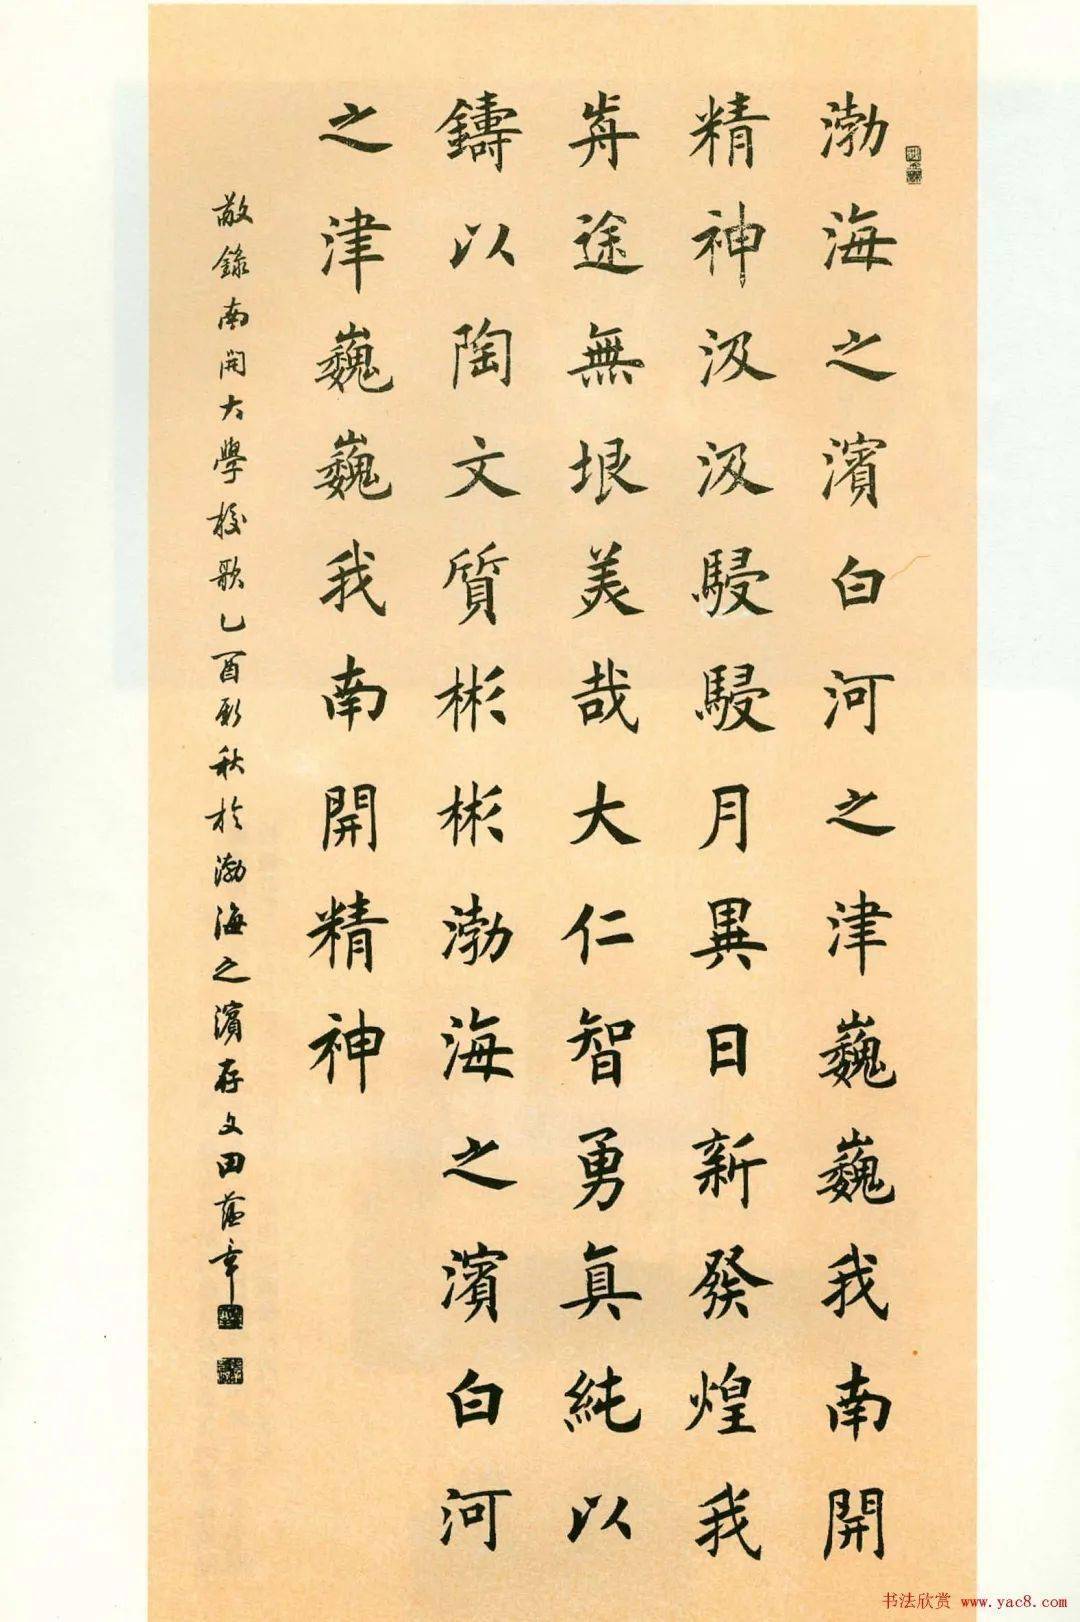 渤海之濱白河之津巍巍我南開
精神汲汲駸駸月異日新發煌我
歬途無垠美哉大仁智勇真純以
鑄以陶文質彬彬渤海之濱白河
之津巍巍我南開精神
敬錄南開大學校歌乙酉新秋於渤海之濱存文田蘊章
书法欣赏 www.yac8.com